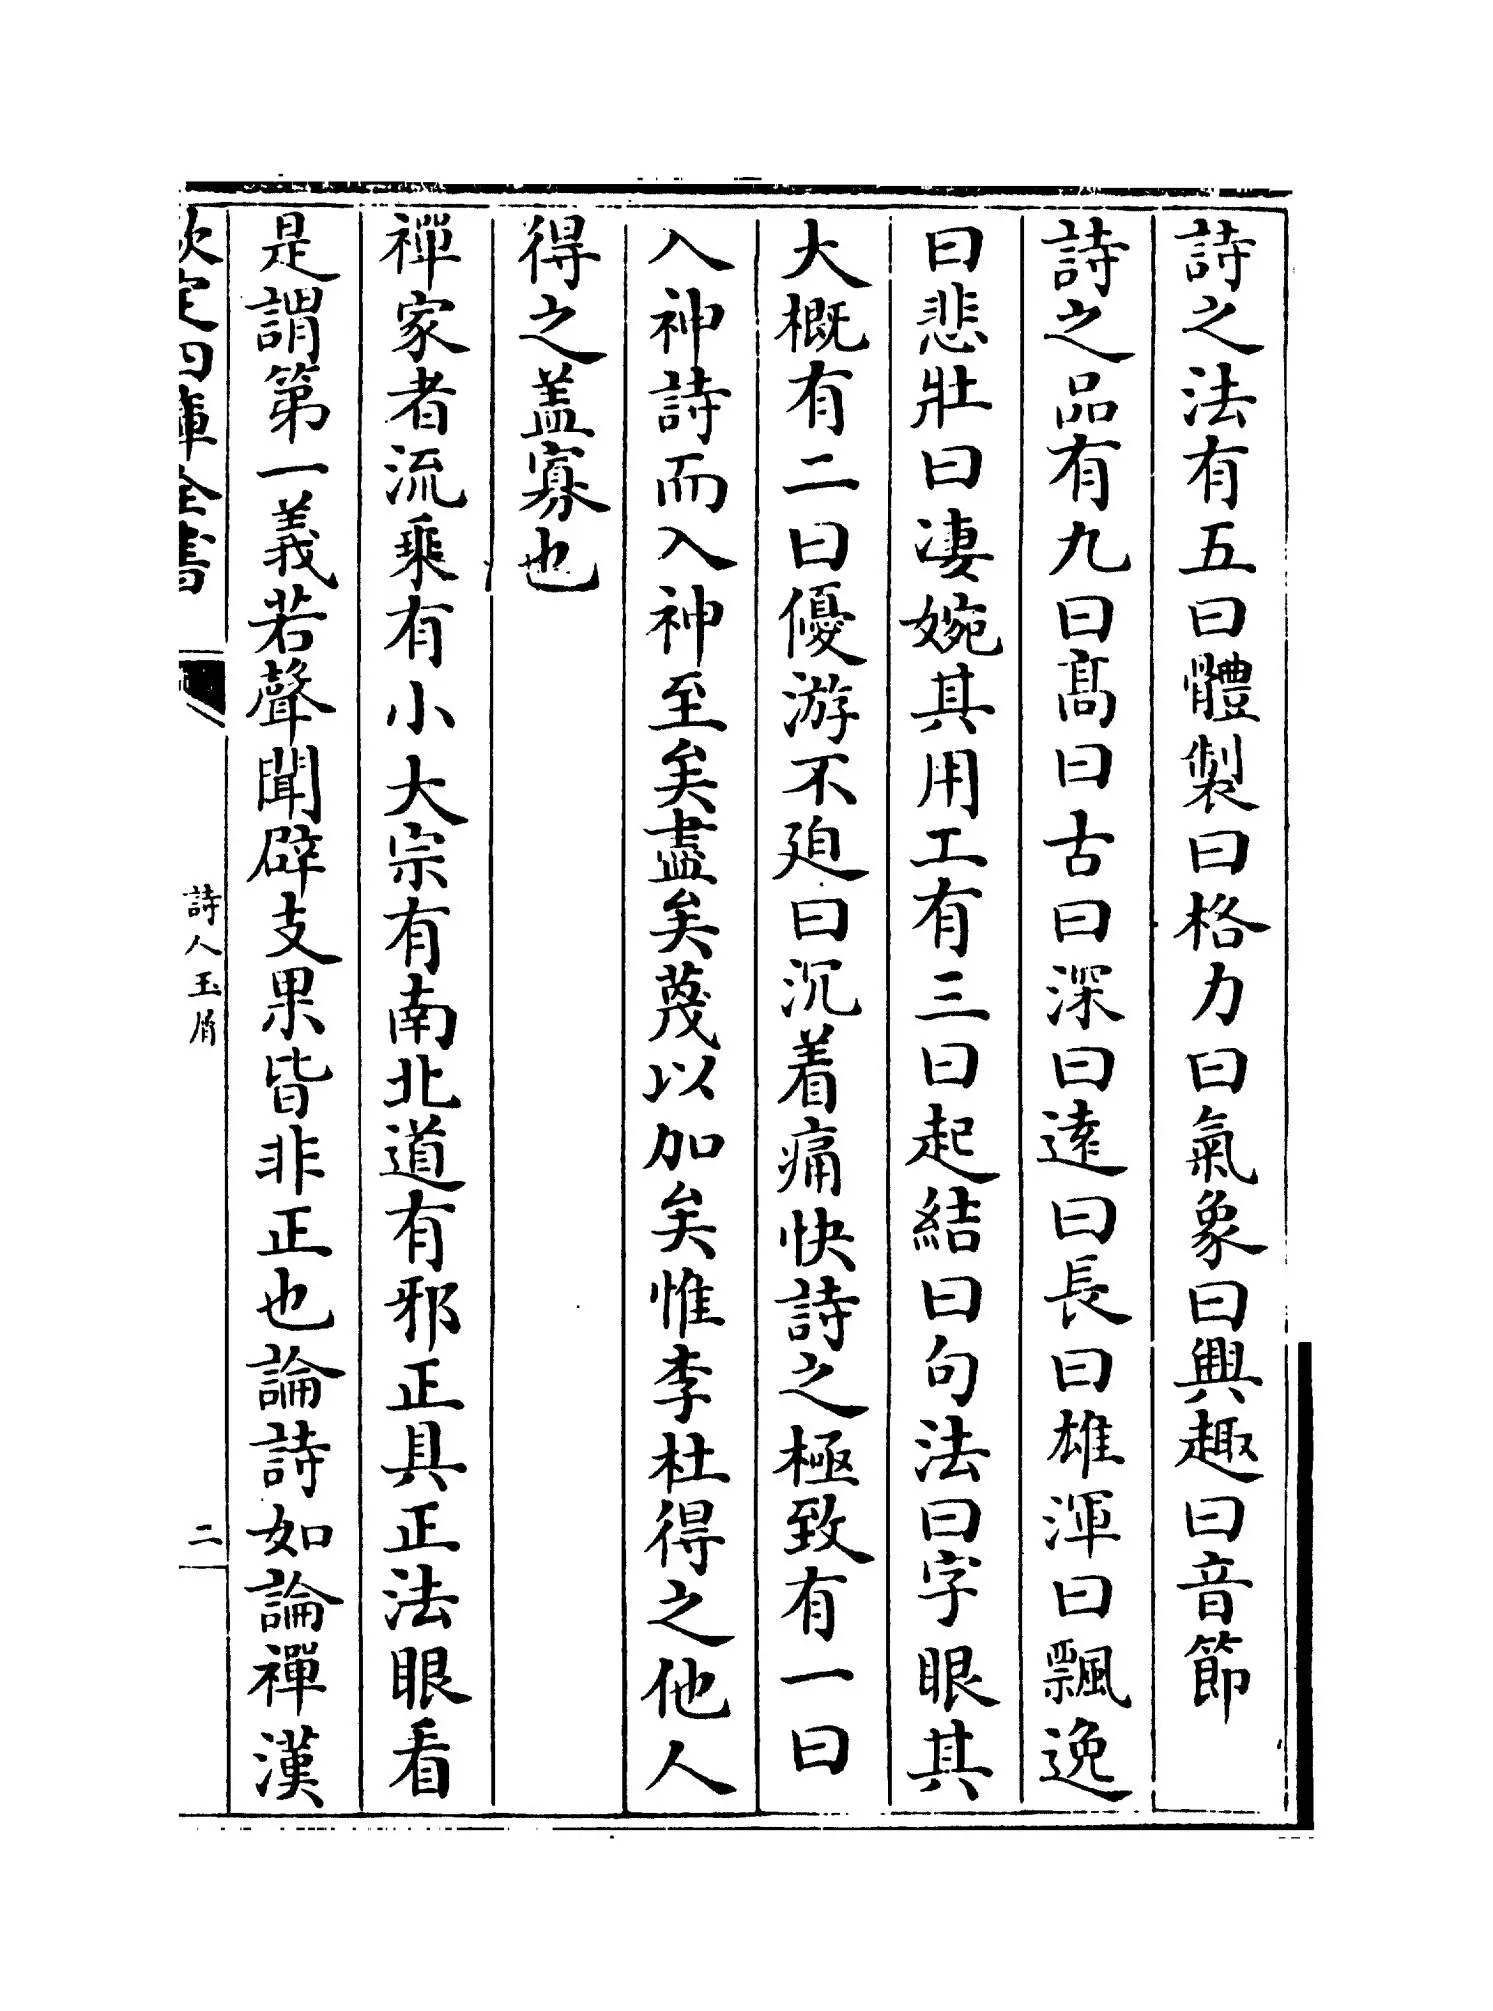 詩之法有五曰體製曰格力曰氣象曰興趣曰音節
詩之品有九曰髙曰古曰深曰逺曰長曰雄渾曰飄逸
曰悲壯曰凄婉其用工有三曰起結曰句法曰字眼其
大概有二曰優游不廹曰沉着痛快詩之極致有一曰
入神詩而入神至矣盡矣蔑以加矣惟李杜得之他人
得之盖寡也
禪家者流乘有小大宗有南北道有邪正具正法眼看
是謂第一義若聲聞辟支果皆非正也論詩如論禪漢
欽定四庫全書
詩人玉屑
二